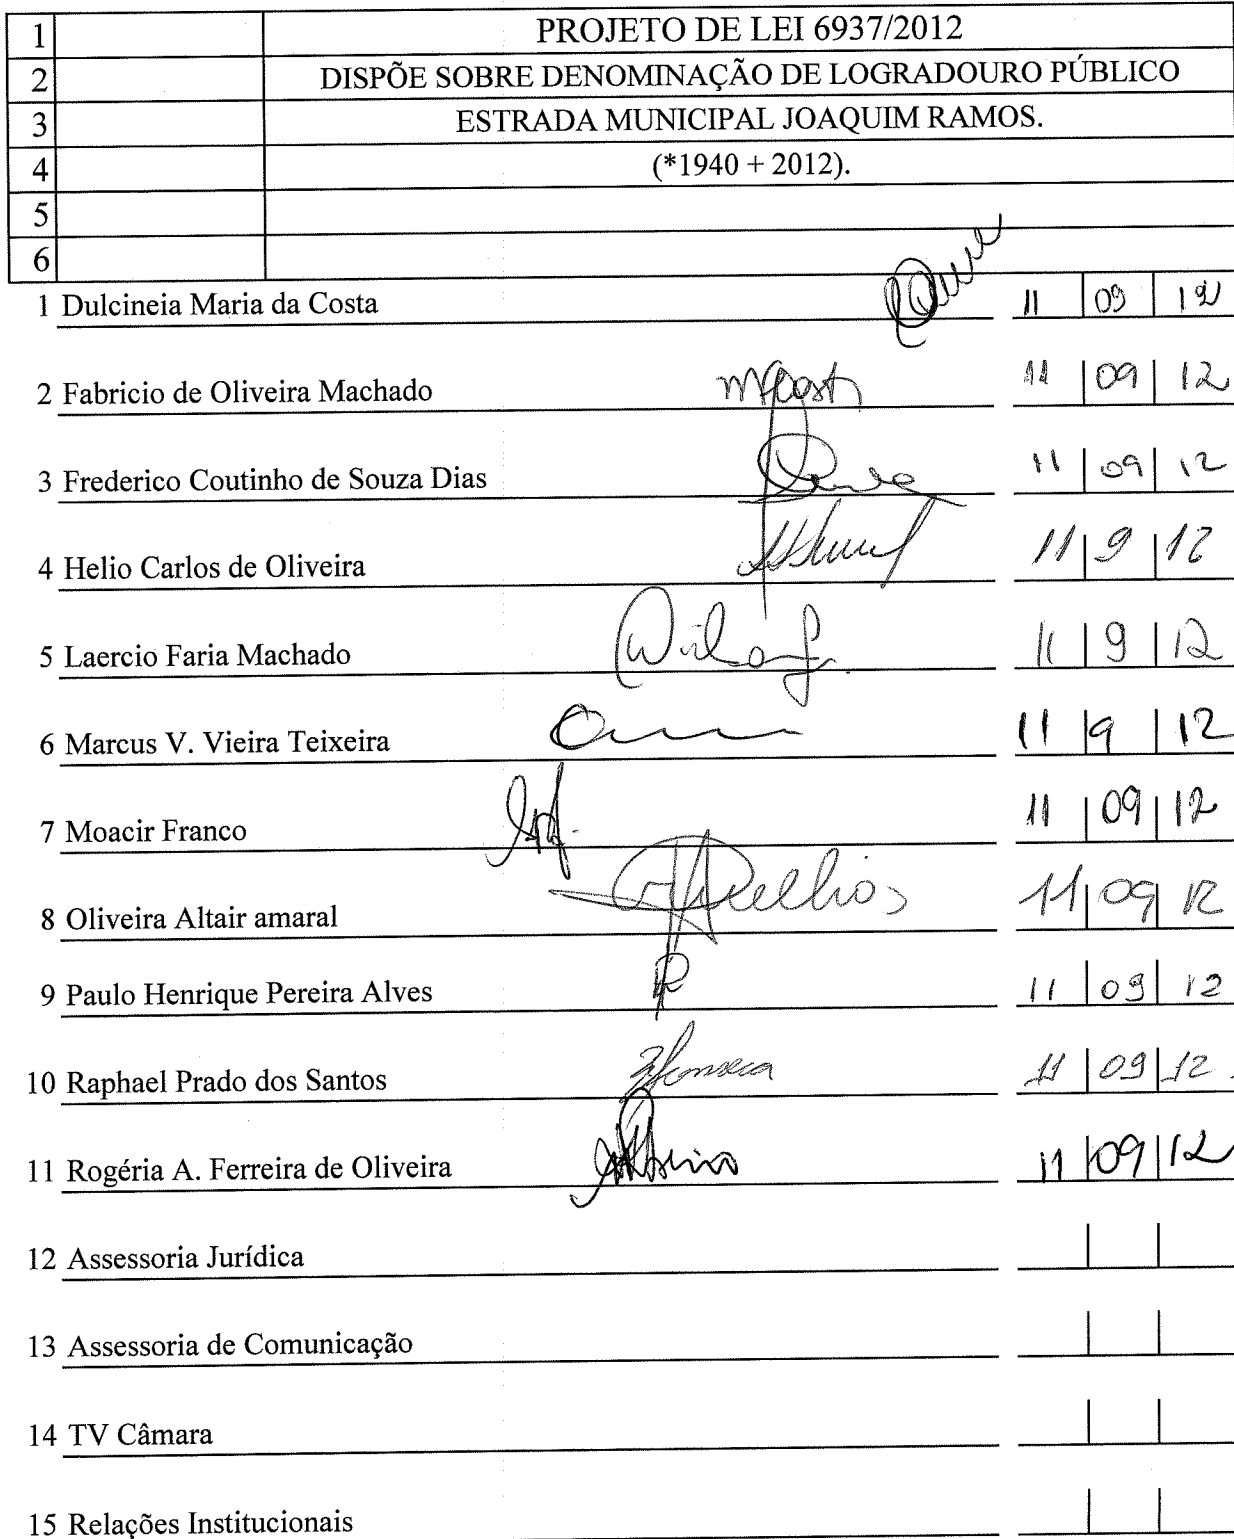 1 PROJETO DE LEI 6937/2012
2 DISPÕE SOBRE DENOMINAÇÃO DE LOGRADOURO PÚBLICO
3 ESTRADA MUNICIPAL JOAQUIM RAMOS.
4 (*1940 + 2012).
5
6
1 Dulcineia Maria da Costa 11 | 09 | 12
2 Fabricio de Oliveira Machado 11 | 09 | 12
3 Frederico Coutinho de Souza Dias 11 | 09 | 12
4 Helio Carlos de Oliveira 11 | 9 | 12
5 Laercio Faria Machado 11 | 9 | 12
6 Marcus V. Vieira Teixeira 11 | 9 | 12
7 Moacir Franco 11 | 09 | 12
8 Oliveira Altair amaral 11 | 09 | 12
9 Paulo Henrique Pereira Alves 11 | 09 | 12
10 Raphael Prado dos Santos 11 | 09 | 12
11 Rogéria A. Ferreira de Oliveira 11 | 09 | 12
12 Assessoria Jurídica
13 Assessoria de Comunicação
14 TV Câmara
15 Relações Institucionais